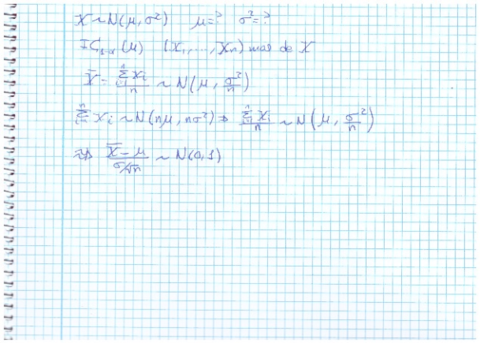 X ~ N(μ, σ²) μ=? σ²=?
IC₁₋α(μ) (X₁, ..., Xn) mas de X
X̄ = Σⁿᵢ₌₁ Xᵢ / n ~ N(μ, σ²/n)
Σⁿᵢ₌₁ Xᵢ ~ N(nμ, nσ²) ⇒ Σⁿᵢ₌₁ Xᵢ / n ~ N(μ, σ²/n)
⇒ (X̄ - μ) / (σ/√n) ~ N(0,1)